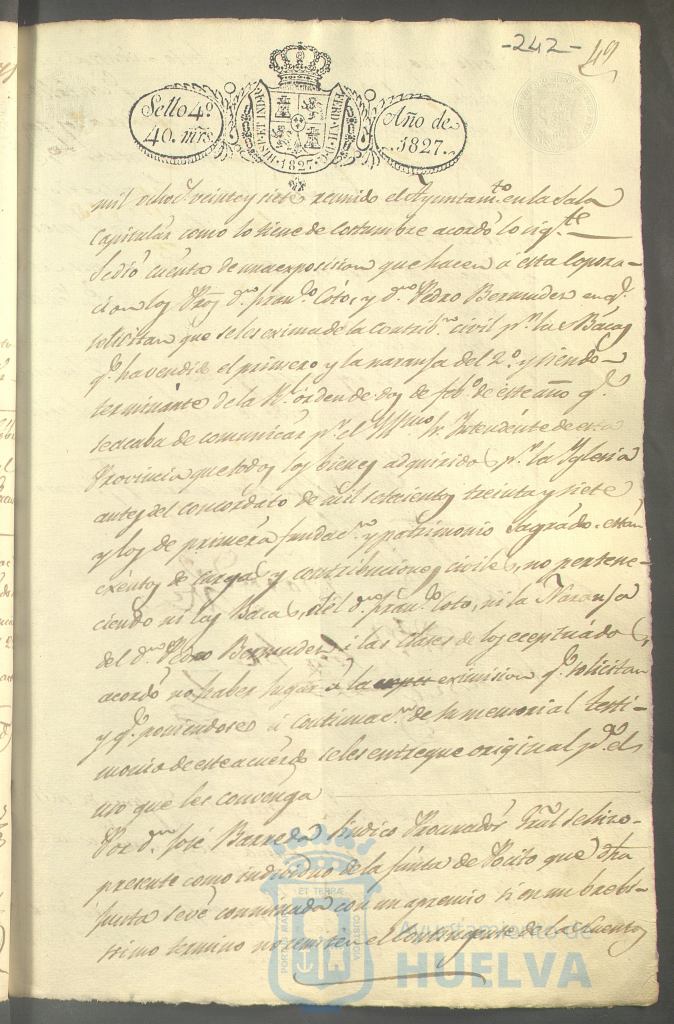 -242- 49
Sello 4º
40. mrs.
HISP. ET IND. R. FERD. VII. D. G. 1827.
Año de
1827.
mil ochoc.s veinte y siete reunido el Ayuntam.to en la Sala
Capitular como lo tiene de costumbre acordó lo sig.te
Se dió cuenta de una exposicion que hacen á esta Corpora-
cion los Pros d.n Fran.co Coto, y d.n Pedro Bermudez en q.e
solicitan que se les exima de la contrib.n civil p.r las Bacas
q.e ha vendido el primero y la naranja del 2.º y siendo
terminante de la R.l orden de dos de feb.o de este año q.e
se acaba de comunicar p.r el Sr. Intendente de esta
Provincia que todos los bienes adquiridos p.r la Yglesia
antes del concordato de mil setecientos treinta y siete
y los de primera fundac.n y patrimonio Sagrado estan
exentos de cargas y contribuciones civiles, no pertene-
ciendo ni las Bacas, del d.n Fran.co Coto, ni la Naranja
del d.n Pedro Bermudez á las clases de los eceptuados,
acordó no haber lugar á la eximision q.e solicitan
y q.e poniendose á continuac.n de su memorial testi-
monio de este acuerdo se les entregue original p.a el
uso que les convenga
Por d.n José Barreda Sindico Procurador Gral se hizo
presente como individuo de la Junta de Pósito que dha
Junta se vé conminada con un apremio si en un brebi-
simo termino no remiten el Contingente de las Cuentas
PORTUS MARIS ET TERRÆ CUSTODIA
Ayuntamiento de
HUELVA